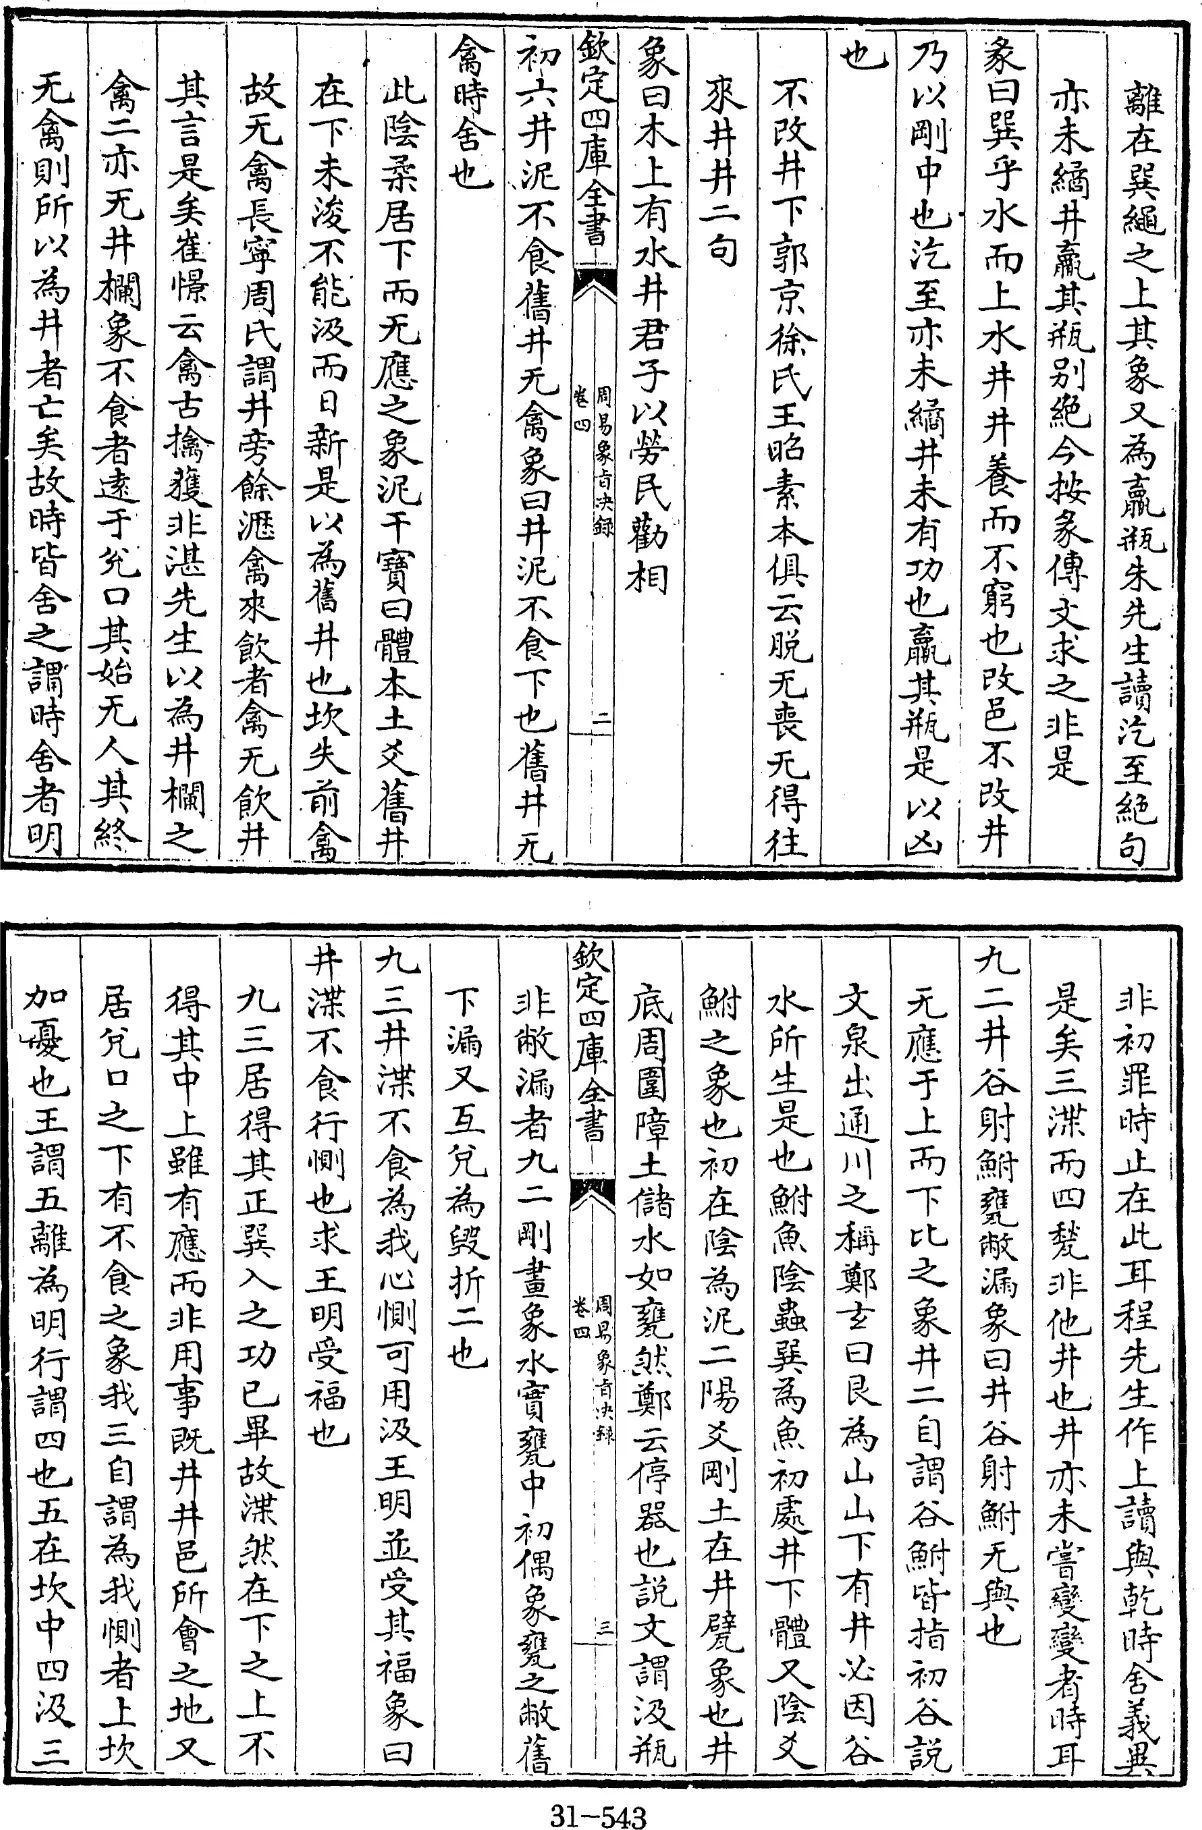 離在巽繩之上其象又為羸瓶朱先生讀汔至絶句
亦未繘井羸其瓶别絶今按彖傳文求之非是
彖曰巽乎水而上水井井養而不窮也改邑不改井
乃以剛中也汔至亦未繘井未有功也羸其瓶是以凶
也
不改井下郭京徐氏王昭素本俱云脱无喪无得往
來井井二句
象曰木上有水井君子以勞民勸相
欽定四庫全書
周易象旨决録
卷四
二
初六井泥不食舊井无禽象曰井泥不食下也舊井无
禽時舍也
此陰柔居下而无應之象泥干寶曰體本土爻舊井
在下未浚不能汲而日新是以為舊井也坎失前禽
故无禽長寧周氏謂井旁餘瀝禽來飲者禽无飲井
其言是矣崔憬云禽古擒獲非湛先生以為井欄之
禽二亦无井欄象不食者逺于兊口其始无人其終
无禽則所以為井者亡矣故時皆舍之謂時舍者明
非初罪時止在此耳程先生作上讀與乾時舍義異
是矣三渫而四甃非他井也井亦未嘗變變者時耳
九二井谷射鮒甕敝漏象曰井谷射鮒无與也
无應于上而下比之象井二自謂谷鮒皆指初谷説
文泉出通川之稱鄭玄曰艮為山山下有井必因谷
水所生是也鮒魚陰蟲巽為魚初處井下體又陰爻
鮒之象也初在陰為泥二陽爻剛土在井甓象也井
底周圍障土儲水如甕然鄭云停器也説文謂汲瓶
欽定四庫全書
周易象旨决録
卷四
三
非敝漏者九二剛畫象水實甕中初偶象甕之敝舊
下漏又互兊為毀折二也
九三井渫不食為我心惻可用汲王明並受其福象曰
井渫不食行惻也求王明受福也
九三居得其正巽入之功已畢故渫然在下之上不
得其中上雖有應而非用事既井井邑所會之地又
居兊口之下有不食之象我三自謂為我惻者上坎
加憂也王謂五離為明行謂四也五在坎中四汲三
31-543